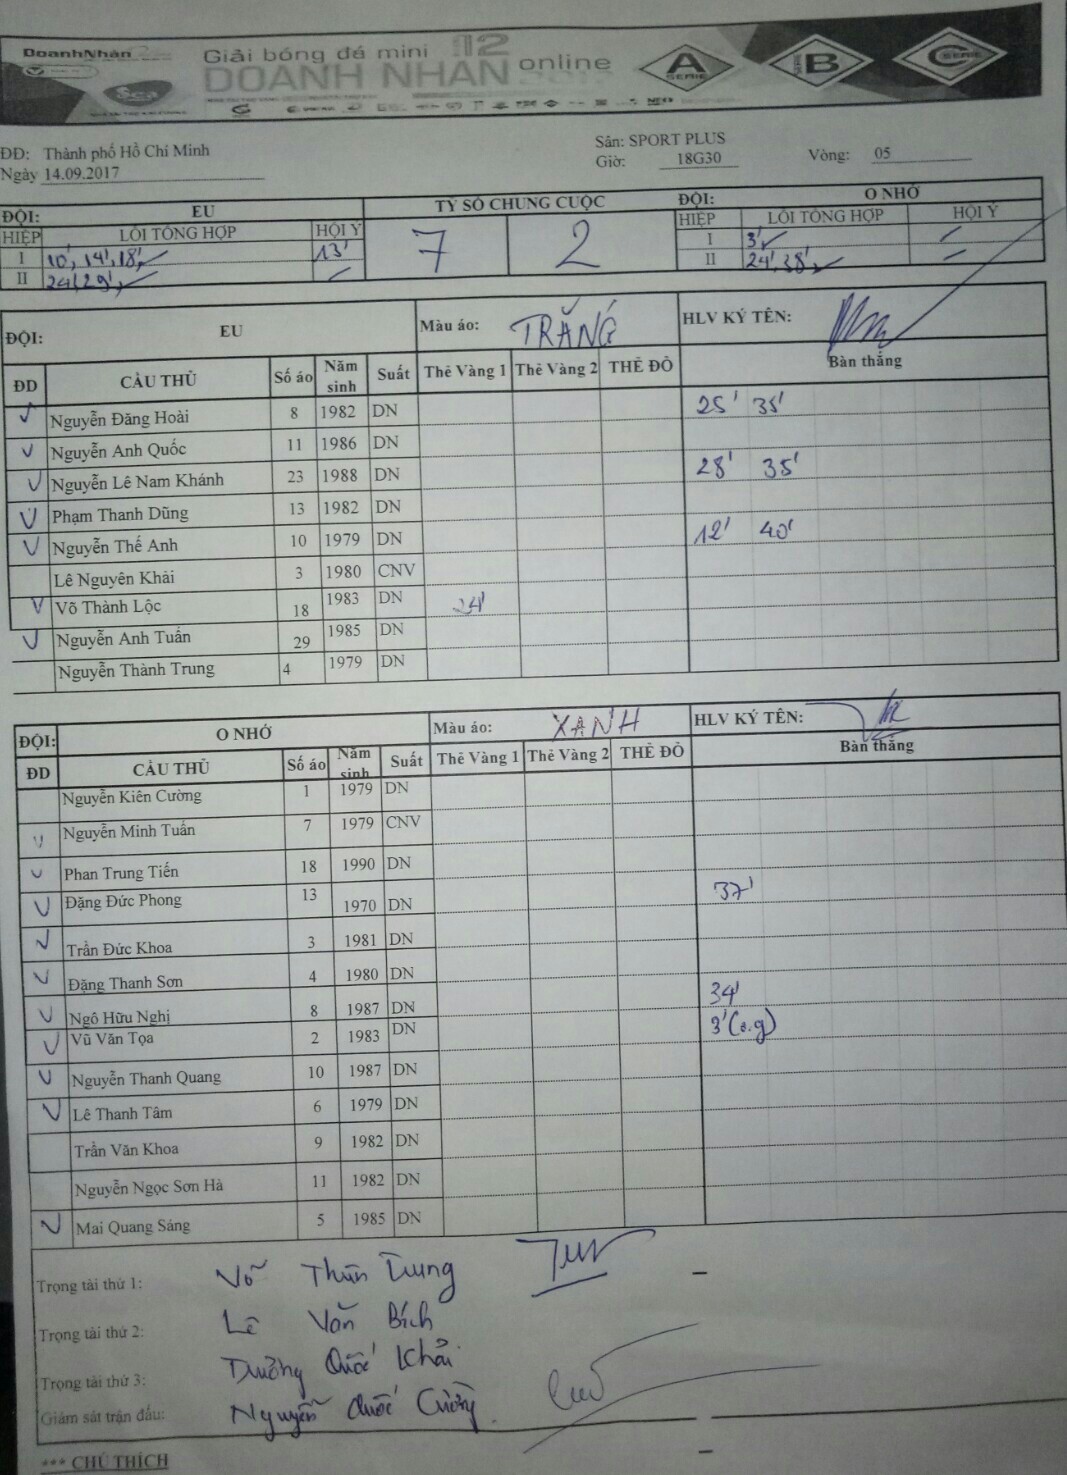 DoanhNhân
Giải bóng đá mini 12
DOANH NHÂN online
A SERIE
B SERIE
C SERIE
ĐĐ: Thành phố Hồ Chí Minh
Sân: SPORT PLUS
Ngày 14.09.2017
Giờ: 18G30
Vòng: 05
ĐỘI: EU TỶ SỐ CHUNG CUỘC ĐỘI: O NHỚ
HIỆP LỖI TỔNG HỢP HỘI Ý 7 2 HIỆP LỖI TỔNG HỢP HỘI Ý
I 10', 14', 18', 13' I 3'
II 24', 29', II 24', 38',
ĐỘI: EU Màu áo: TRẮNG HLV KÝ TÊN:
ĐD CẦU THỦ Số áo Năm sinh Suất Thẻ Vàng 1 Thẻ Vàng 2 THẺ ĐỎ Bàn thắng
Nguyễn Đăng Hoài 8 1982 DN 25' 35'
Nguyễn Anh Quốc 11 1986 DN
Nguyễn Lê Nam Khánh 23 1988 DN 28' 35'
Phạm Thanh Dũng 13 1982 DN
Nguyễn Thế Anh 10 1979 DN 12' 40'
Lê Nguyên Khải 3 1980 CNV
Võ Thành Lộc 18 1983 DN 24'
Nguyễn Anh Tuấn 29 1985 DN
Nguyễn Thành Trung 4 1979 DN
ĐỘI: O NHỚ Màu áo: XANH HLV KÝ TÊN:
ĐD CẦU THỦ Số áo Năm sinh Suất Thẻ Vàng 1 Thẻ Vàng 2 THẺ ĐỎ Bàn thắng
Nguyễn Kiên Cường 1 1979 DN
Nguyễn Minh Tuấn 7 1979 CNV
Phan Trung Tiến 18 1990 DN
Đặng Đức Phong 13 1970 DN 37'
Trần Đức Khoa 3 1981 DN
Đặng Thanh Sơn 4 1980 DN
Ngô Hữu Nghị 8 1987 DN 34'
Vũ Văn Tọa 2 1983 DN 3' (o.g)
Nguyễn Thanh Quang 10 1987 DN
Lê Thanh Tâm 6 1979 DN
Trần Văn Khoa 9 1982 DN
Nguyễn Ngọc Sơn Hà 11 1982 DN
Mai Quang Sáng 5 1985 DN
Trọng tài thứ 1: Võ Trung
Trọng tài thứ 2: Lê Văn Bích
Trọng tài thứ 3: Dương Quốc Khải
Giám sát trận đấu: Nguyễn Quốc Cường
*** CHÚ THÍCH